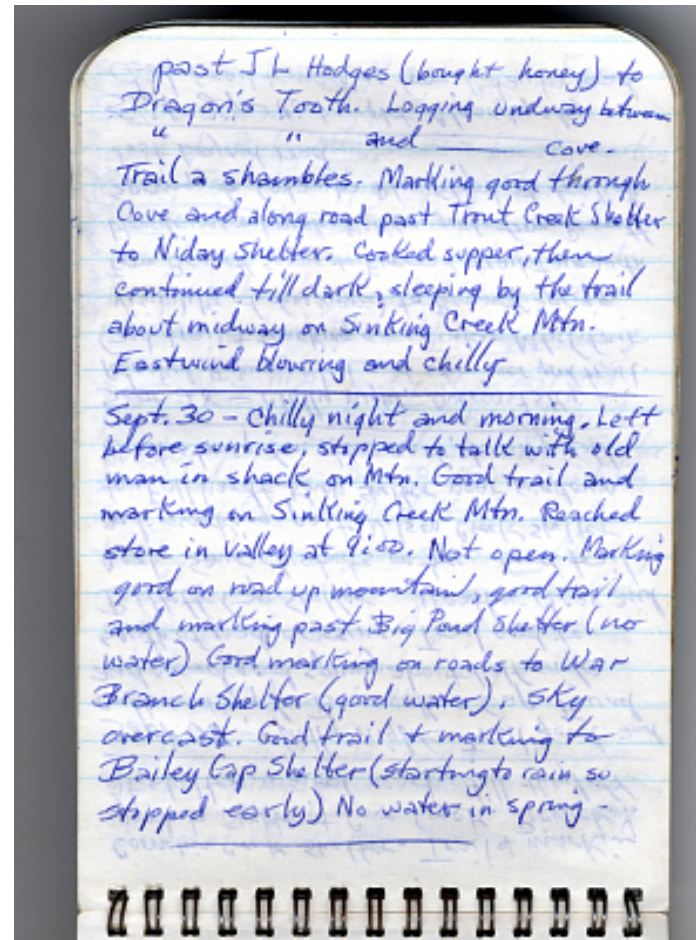 past J L Hodges (bought honey) to
Dragon's Tooth. Logging undway between
" " and ____ cove.
Trail a shambles. Marking good through
Cove and along road past Trout Creek Shelter
to Niday Shelter. Cooked supper, then
continued till dark, sleeping by the trail
about midway on Sinking Creek Mtn.
Eastwind blowing and chilly
Sept. 30 - Chilly night and morning. Left
before sunrise, stopped to talk with old
man in shack on Mtn. Good trail and
marking on Sinking Creek Mtn. Reached
store in valley at 9:00. Not open. Marking
good on road up mountain, good trail
and marking past Big Pond Shelter (no
water) Good marking on roads to War
Branch Shelter (good water), sky
overcast. Good trail + marking to
Bailey Gap Shelter (starting to rain so
stopped early) No water in spring -